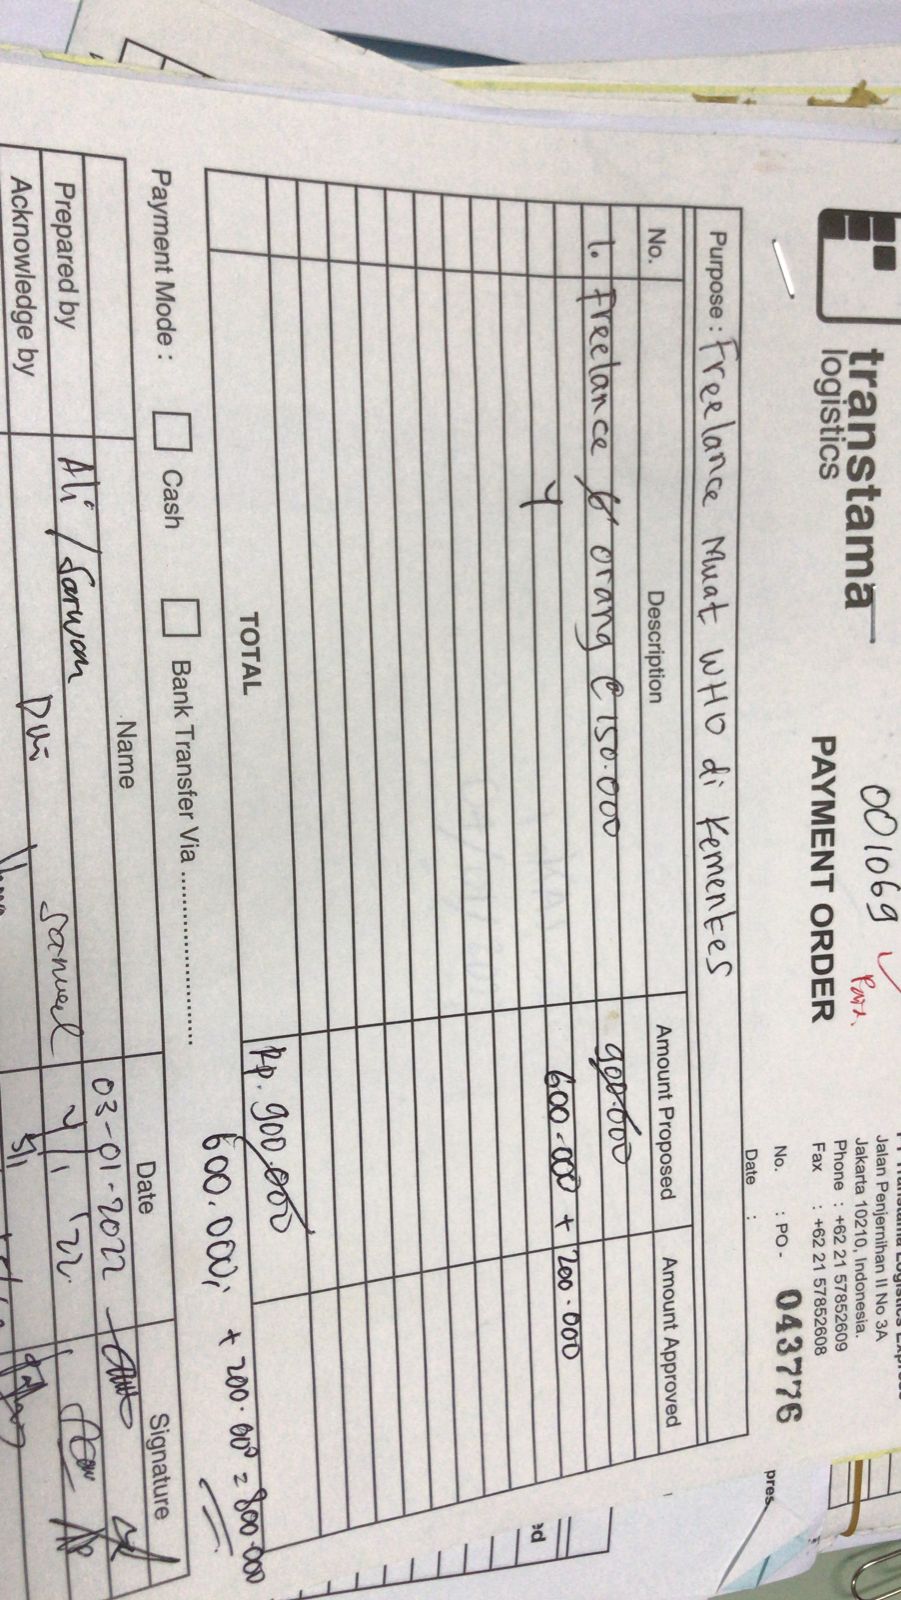 transtama
logistics
001069
PAYMENT ORDER
Jalan Penjernihan II No 3A
Jakarta 10210, Indonesia.
Phone : +62 21 57852609
Fax : +62 21 57852608
No. : PO - 043776
Date :
Purpose : Freelance Muat WHO di Kemenkes
No. Description Amount Proposed Amount Approved
1. Freelance 6 orang @ 150.000 900.000
4 600.000 + 200.000
TOTAL Rp. 900.000
600.000, + 200.000 = 800.000
Payment Mode : Cash Bank Transfer Via ....................
Name Date Signature
Prepared by Ali / Sarwan 03-01-2022
Acknowledge by Dwi
pres
ed